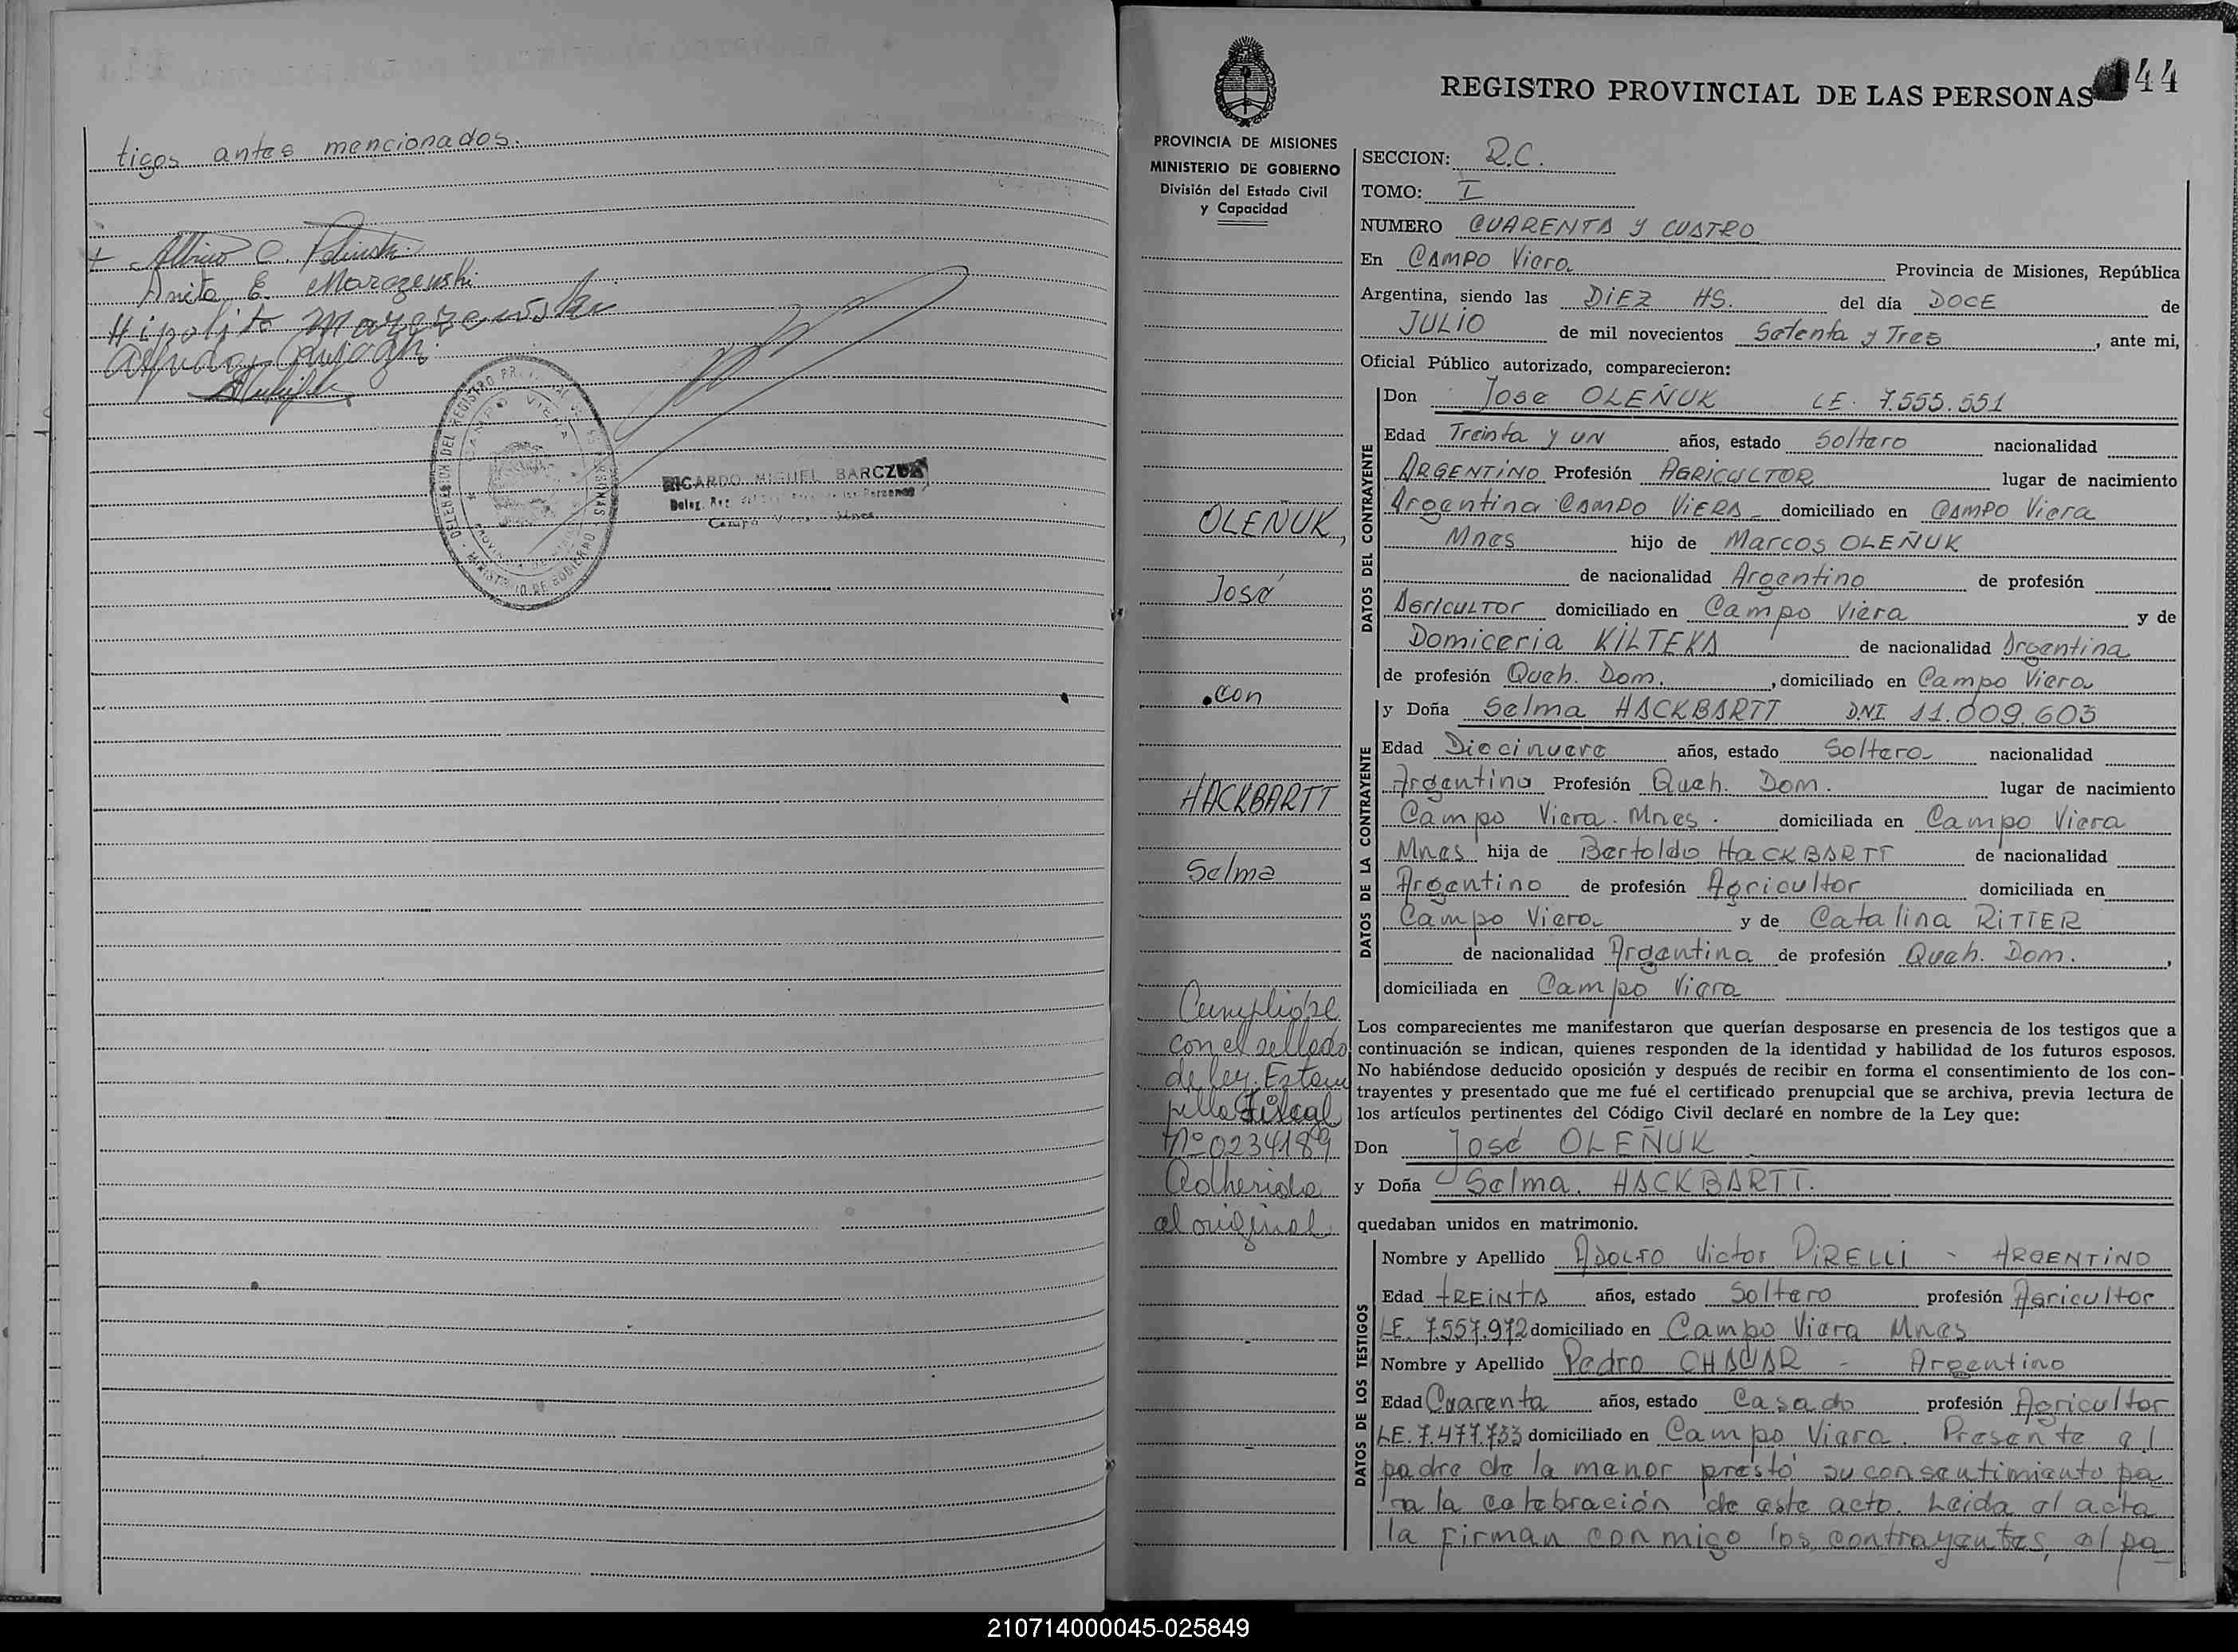 tigos antes mencionados.
Anita E. Marczewski
Hipolito Marczewski
RICARDO MIGUEL BARCZUK
Campo Viera Mnes
144
REGISTRO PROVINCIAL DE LAS PERSONAS
PROVINCIA DE MISIONES
MINISTERIO DE GOBIERNO
División del Estado Civil
y Capacidad
OLEÑUK,
José
con
HACKBARTT
Selma
Cumplióse
con el sellado
de ley. Estam
pilla Fiscal
Nº 0234189
Adherida
al original
SECCION: R.C.
TOMO: I
NUMERO CUARENTA Y CUATRO
En CAMPO Viera Provincia de Misiones, República
Argentina, siendo las DIEZ HS. del día DOCE de
JULIO de mil novecientos Setenta y Tres, ante mi,
Oficial Público autorizado, comparecieron:
DATOS DEL CONTRAYENTE
Don Jose OLEÑUK LE. 7.555.551
Edad Treinta y UN años, estado Soltero nacionalidad
ARGENTINO Profesión AGRICULTOR lugar de nacimiento
Argentina CAMPO VIERA domiciliado en CAMPO Viera
Mnes hijo de Marcos OLEÑUK
de nacionalidad Argentino de profesión
AGRICULTOR domiciliado en Campo Viera y de
Domiceria KILTEKA de nacionalidad Argentina
de profesión Queh. Dom., domiciliado en Campo Viera
DATOS DE LA CONTRAYENTE
y Doña Selma HACKBARTT DNI 11.009.603
Edad Diecinueve años, estado Soltera nacionalidad
Argentina Profesión Queh. Dom. lugar de nacimiento
Campo Viera. Mnes. domiciliada en Campo Viera
Mnes hija de Bertoldo HACKBARTT de nacionalidad
Argentino de profesión Agricultor domiciliada en
Campo Viera y de Catalina RITTER
de nacionalidad Argentina de profesión Queh. Dom.,
domiciliada en Campo Viera
Los comparecientes me manifestaron que querían desposarse en presencia de los testigos que a
continuación se indican, quienes responden de la identidad y habilidad de los futuros esposos.
No habiéndose deducido oposición y después de recibir en forma el consentimiento de los con-
trayentes y presentado que me fué el certificado prenupcial que se archiva, previa lectura de
los artículos pertinentes del Código Civil declaré en nombre de la Ley que:
Don José OLEÑUK
y Doña Selma. HACKBARTT.
quedaban unidos en matrimonio.
DATOS DE LOS TESTIGOS
Nombre y Apellido ADOLFO Victor PIRELLI - ARGENTINO
Edad TREINTA años, estado Soltero profesión Agricultor
LE. 7.557.972 domiciliado en Campo Viera Mnes
Nombre y Apellido Pedro - Argentino
Edad Cuarenta años, estado Casado profesión Agricultor
LE. 7.477.733 domiciliado en Campo Viera. Presente el
padre de la menor prestó su consentimiento pa
ra la celebración de este acto. Leida el acta
la firman conmigo los contrayentes, el pa
210714000045-025849